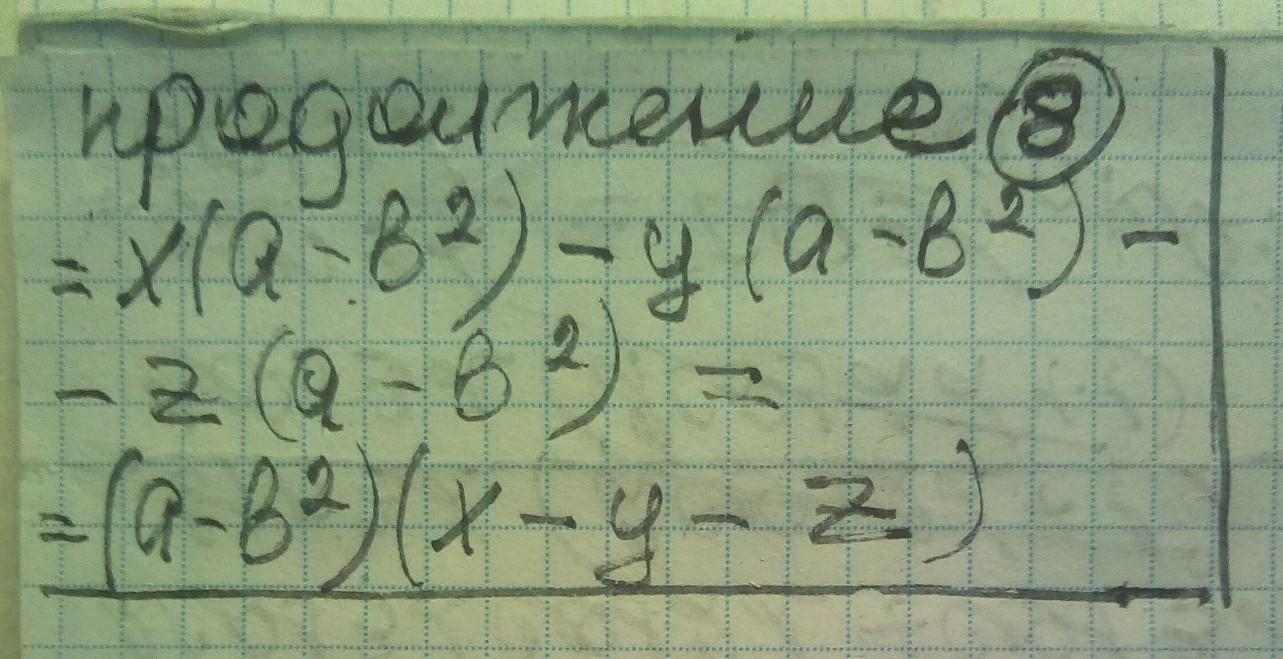 продолжение 8
= x(a - b²) - y(a - b²) -
- z(a - b²) =
= (a - b²)(x - y - z)